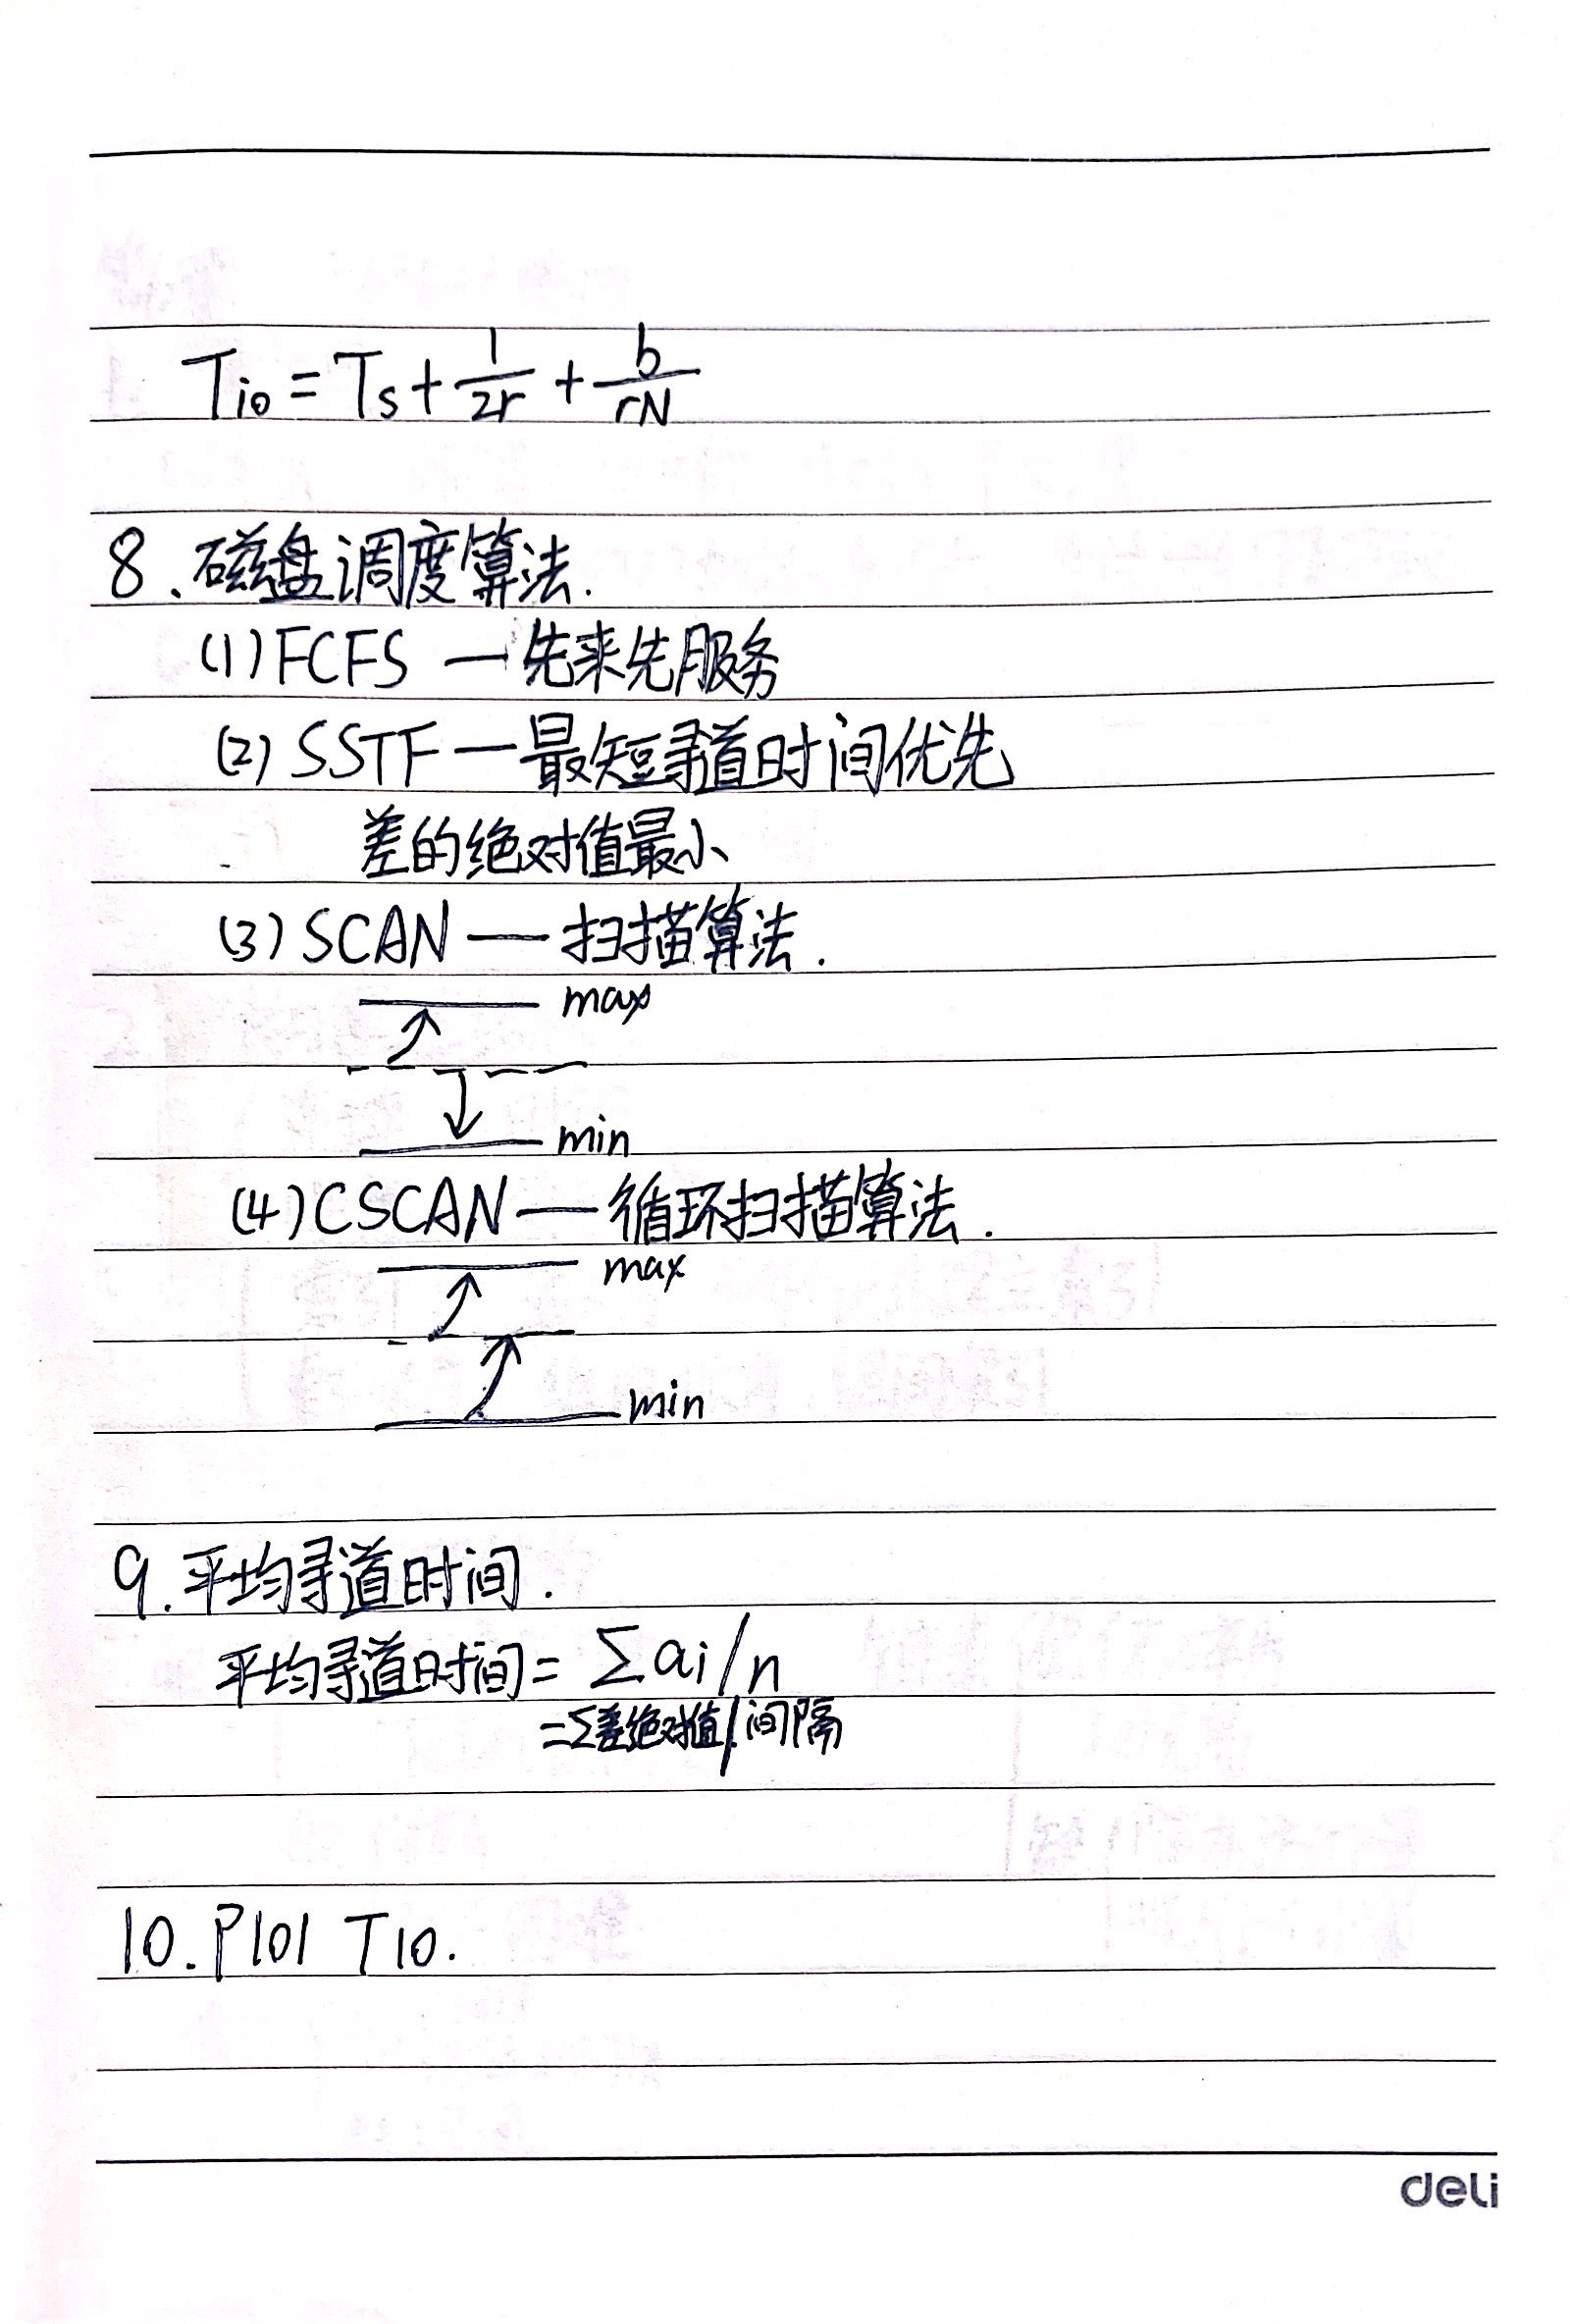 Tio = Ts + 1/2r + b/rN
8、磁盘调度算法.
(1) FCFS — 先来先服务
(2) SSTF — 最短寻道时间优先
差的绝对值最小
(3) SCAN — 扫描算法.
max
min
(4) CSCAN — 循环扫描算法.
max
min
9. 平均寻道时间.
平均寻道时间 = Σai/n
=Σ差绝对值/间隔
10. P101 T10.
deli